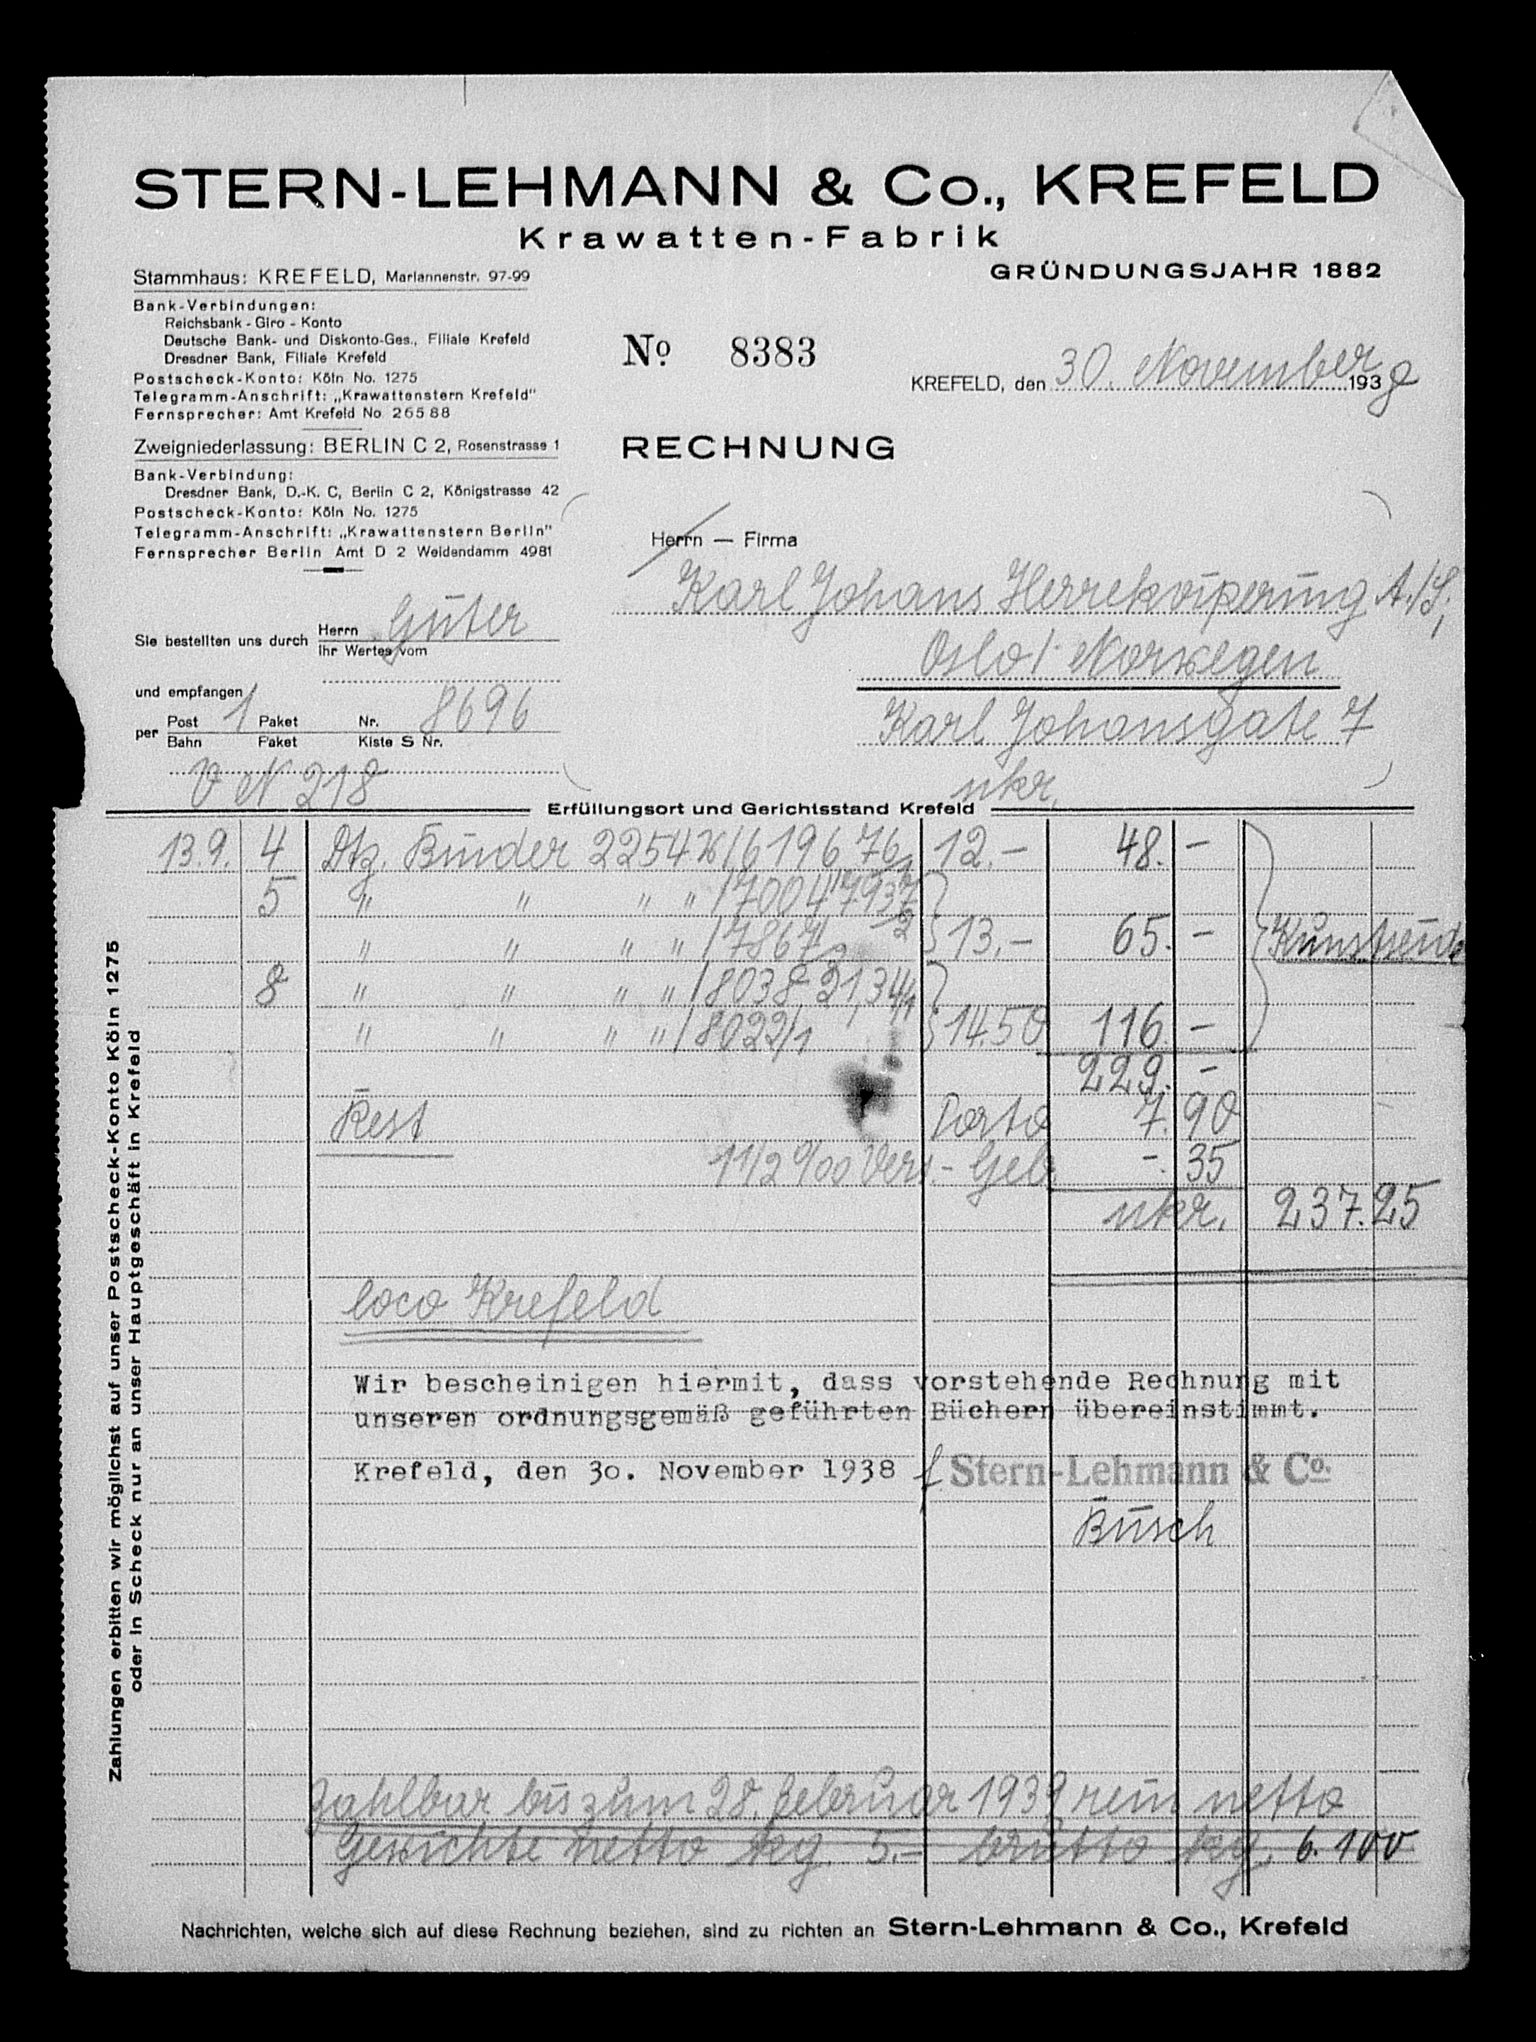 STERN-LEHMANN & Co., KREFELD
Krawatten-Fabrik
GRÜNDUNGSJAHR 1882
Stammhaus: KREFELD, Mariannenstr. 97-99
Bank-Verbindungen:
Reichsbank - Giro - Konto
Deutsche Bank- und Diskonto-Ges., Filiale Krefeld
Dresdner Bank, Filiale Krefeld
Postscheck-Konto: Köln No. 1275
Telegramm-Anschrift: „Krawattenstern Krefeld"
Fernsprecher: Amt Krefeld No 26588
Zweigniederlassung: BERLIN C 2, Rosenstrasse 1
Bank-Verbindung:
Dresdner Bank, D.-K. C, Berlin C 2, Königstrasse 42
Postscheck-Konto: Köln No. 1275
Telegramm-Anschrift: „Krawattenstern Berlin"
Fernsprecher Berlin Amt D 2 Weidendamm 4981
No 8383
KREFELD, den 30. November 1938
RECHNUNG
Herrn — Firma
Karl Johans Herrekviperung A./S.,
Oslo / Norwegen
Karl Johansgate 7
Sie bestellten uns durch Herrn Güter
Ihr Wertes vom
und empfangen
per Post 1 Paket Nr. 8696
Bahn Paket Kiste S Nr.
V N 218
nkr.
Erfüllungsort und Gerichtsstand Krefeld
13.9. 4 Dtz. Binder 2254 /6196 76/1 12.- 48. -
5 " " " " /7004 7937/2
" " " " /7867/2 13.- 65. - Kunstseide
8 " " " " /8038, 21, 34/1
" " " " /8022/1 14.50 116. -
229. -
Rest Porto 7. 90
1 1/2 0/00 Vers.- Geb. -. 35
nkr. 237.25
loco Krefeld
Wir bescheinigen hiermit, dass vorstehende Rechnung mit
unseren ordnungsgemäß geführten Büchern übereinstimmt.
Krefeld, den 30. November 1938 Stern-Lehmann & Co.
Busch
Zahlbar bis zum 28. Februar 1939 rein netto
Gewichte netto kg. 5.- brutto kg. 6.100
Nachrichten, welche sich auf diese Rechnung beziehen, sind zu richten an Stern-Lehmann & Co., Krefeld
Zahlungen erbitten wir möglichst auf unser Postscheck-Konto Köln 1275
oder in Scheck nur an unser Hauptgeschäft in Krefeld